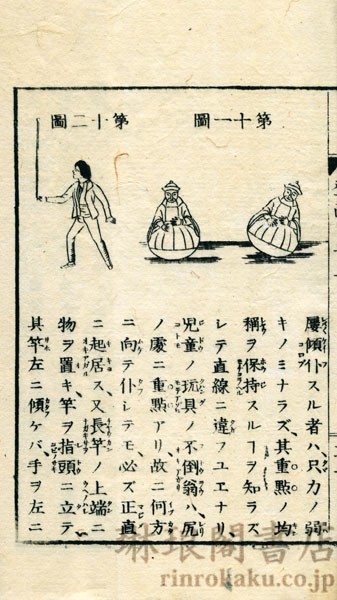 第十一圖
第十二圖
屢傾仆スル者ハ只力ノ弱
キノミナラズ其重點ノ均
稱ヲ保持スルヿヲ知ラズ
シテ直線ニ違フユエナリ
児童ノ玩具ノ不倒翁ハ尻
ノ處ニ重點アリ故ニ何方
ニ向テ仆レテモ必ズ正直
ニ起居ス又長竿ノ上端ニ
物ヲ置キ竿ヲ指頭ニ立テ
其竿左ニ傾ケバ手ヲ左ニ
琳琅閣書店
rinrokaku.co.jp